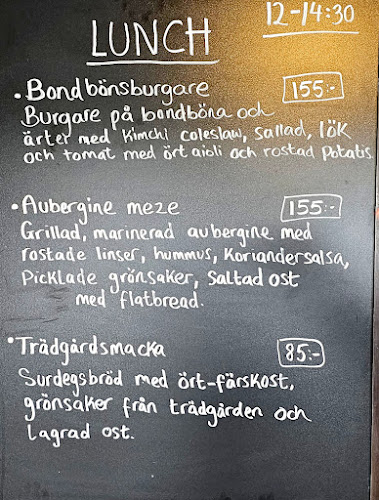 12-14:30
LUNCH
• Bondbönsburgare 155:-
Burgare på bondböna och
ärter med Kimchi coleslaw, sallad, lök
och tomat med ört aioli och rostad Potatis
• Aubergine meze 155:-
Grillad, marinerad aubergine med
rostade linser, hummus, Koriandersalsa,
Picklade grönsaker, Saltad ost
med flatbread.
• Trädgårdsmacka 85:-
Surdegsbröd med ört-färskost,
grönsaker från trädgården och
Lagrad ost.